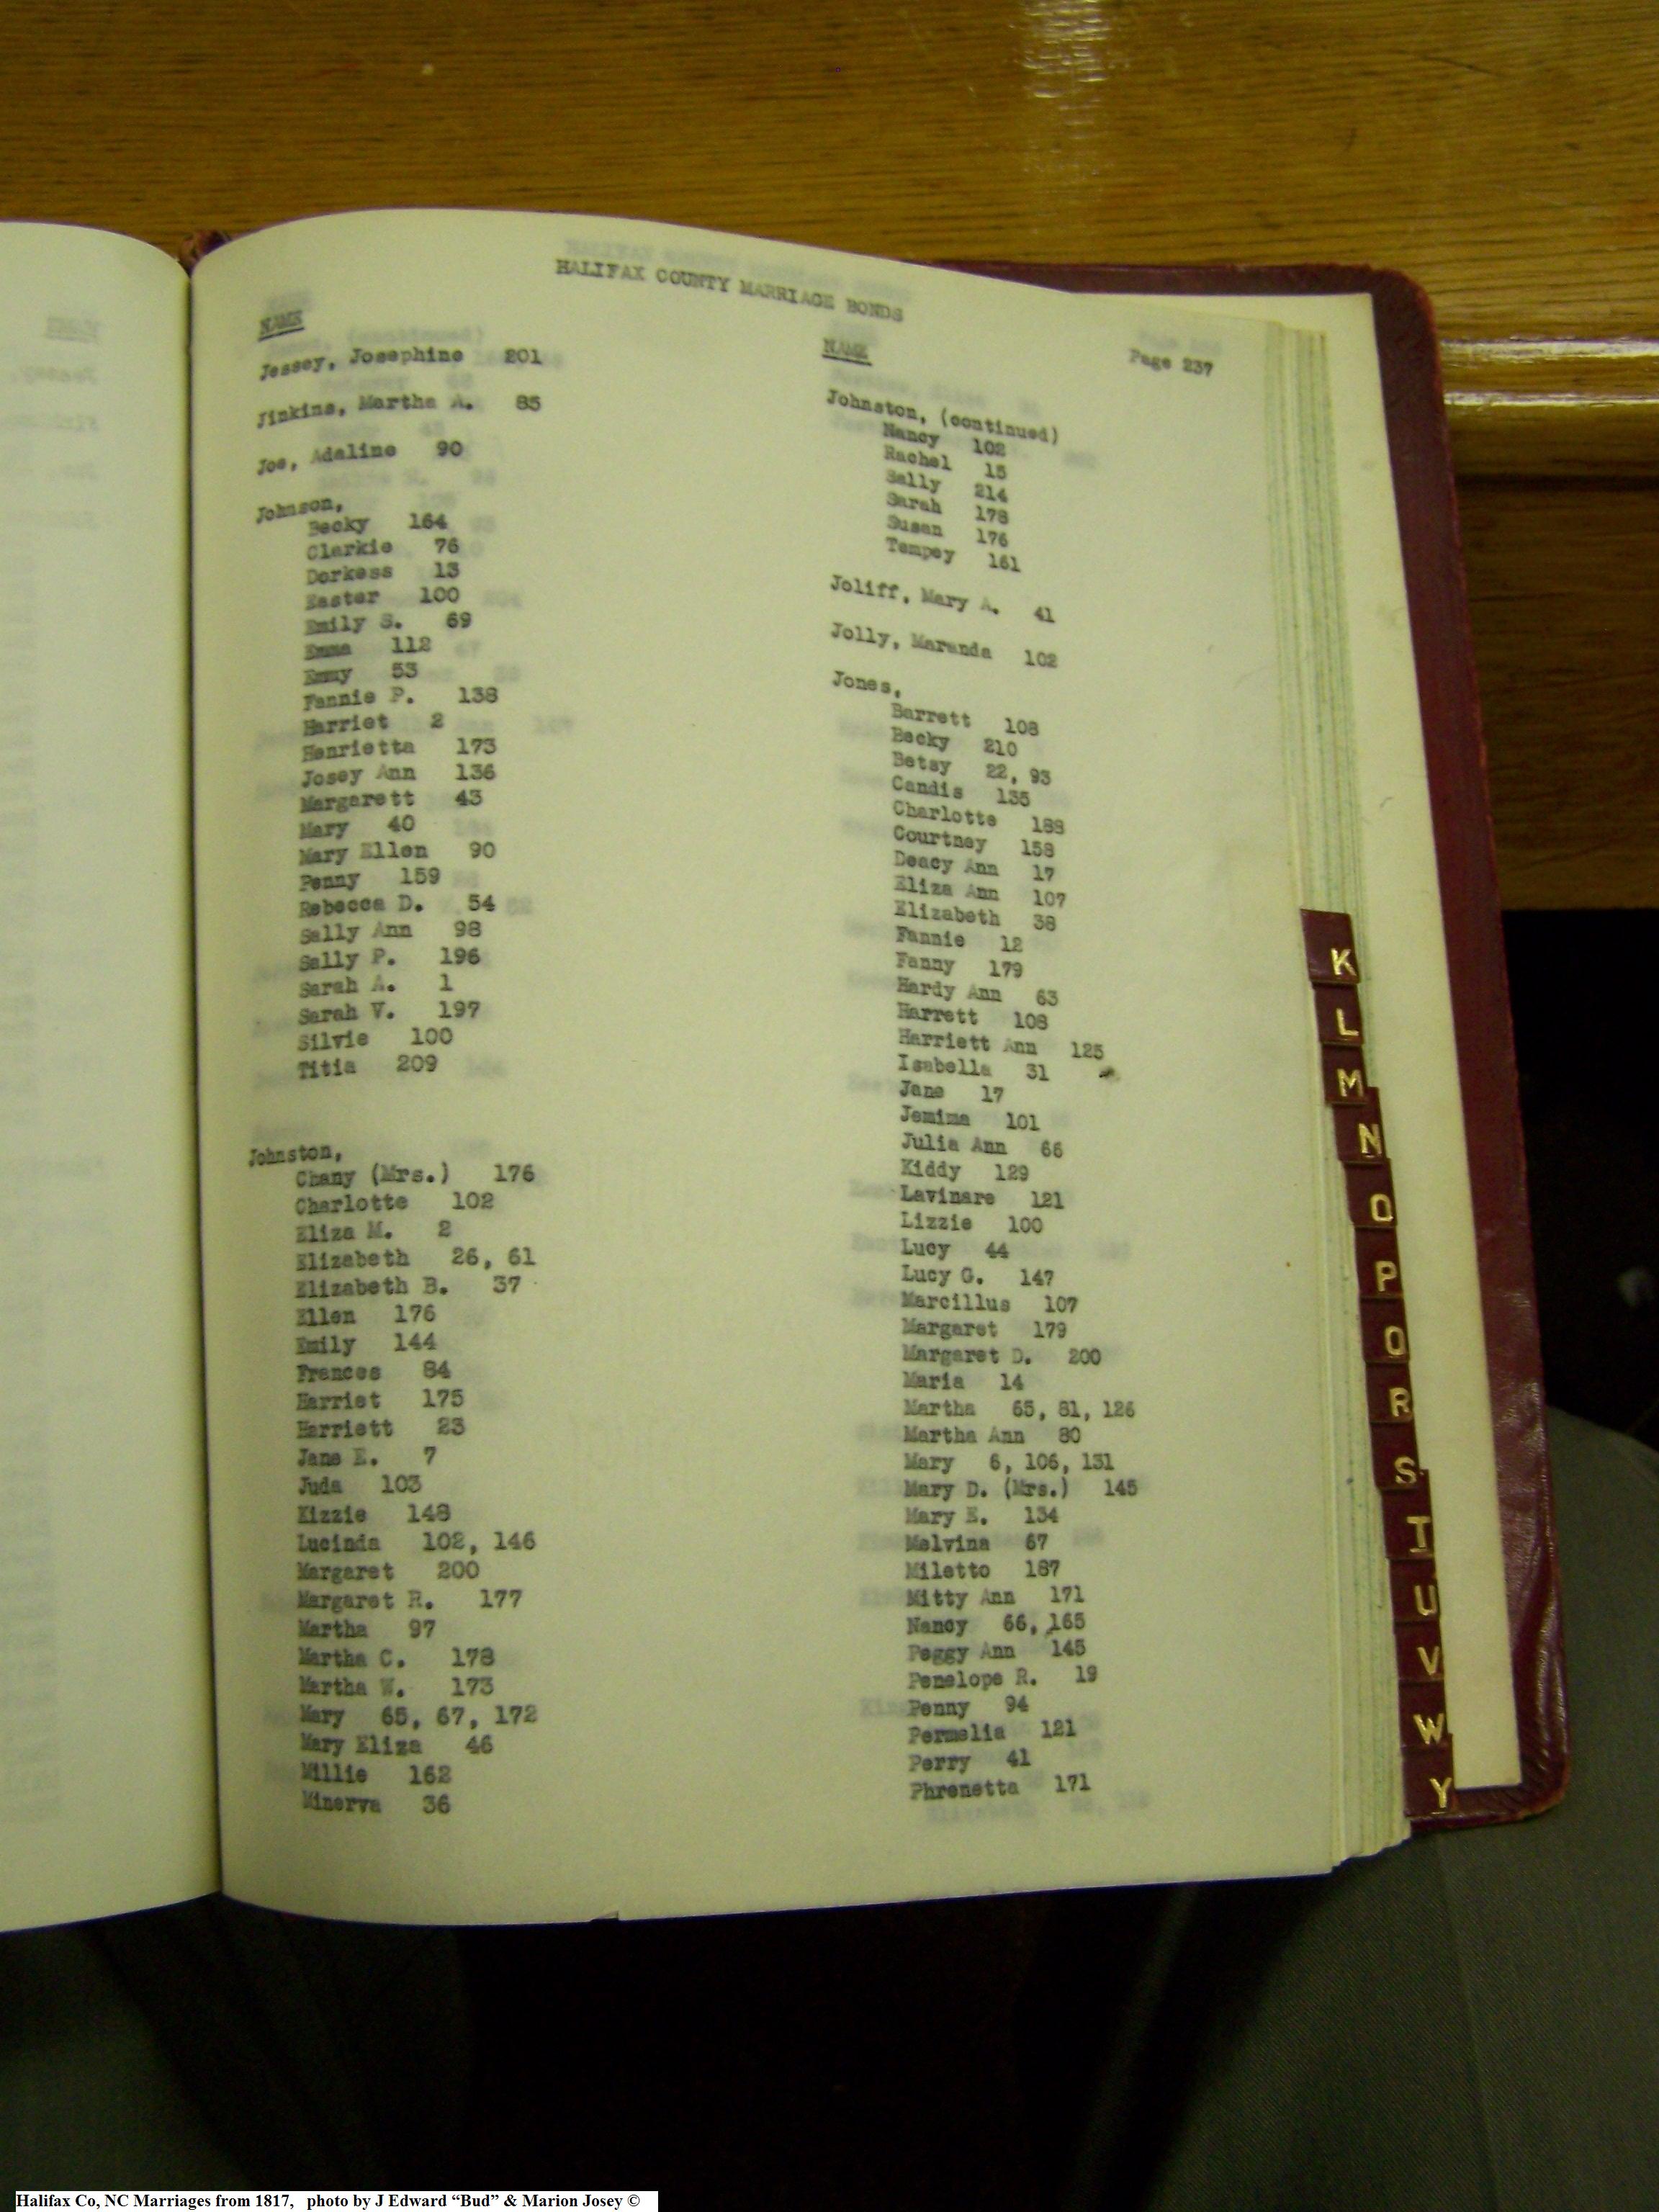 HALIFAX COUNTY MARRIAGE BONDS
Page 237
NAME
Jessey, Josephine 201
Jinkins, Martha A. 85
Joe, Adaline 90
Johnson,
Becky 164
Clarkie 76
Dorkess 13
Easter 100
Emily S. 69
Emma 112
Emmy 53
Fannie P. 138
Harriet 2
Henrietta 173
Josey Ann 136
Margarett 43
Mary 40
Mary Ellen 90
Penny 159
Rebecca D. 54
Sally Ann 98
Sally P. 196
Sarah A. 1
Sarah V. 197
Silvie 100
Titia 209
Johnston,
Chany (Mrs.) 176
Charlotte 102
Eliza M. 2
Elizabeth 26, 61
Elizabeth B. 37
Ellen 176
Emily 144
Frances 84
Harriet 175
Harriett 23
Jane E. 7
Juda 103
Kizzie 148
Lucinda 102, 146
Margaret 200
Margaret R. 177
Martha 97
Martha C. 178
Martha W. 173
Mary 65, 67, 172
Mary Eliza 46
Millie 162
Minerva 36
NAME
Johnston, (continued)
Nancy 102
Rachel 15
Sally 214
Sarah 178
Susan 176
Tempey 161
Joliff, Mary A. 41
Jolly, Maranda 102
Jones,
Barrett 108
Becky 210
Betsy 22, 93
Candis 135
Charlotte 188
Courtney 158
Deacy Ann 17
Eliza Ann 107
Elizabeth 38
Fannie 12
Fanny 179
Hardy Ann 63
Harrett 108
Harriett Ann 125
Isabella 31
Jane 17
Jemima 101
Julia Ann 66
Kiddy 129
Lavinare 121
Lizzie 100
Lucy 44
Lucy G. 147
Marcillus 107
Margaret 179
Margaret D. 200
Maria 14
Martha 65, 81, 126
Martha Ann 80
Mary 6, 106, 131
Mary D. (Mrs.) 145
Mary E. 134
Melvina 67
Miletto 187
Mitty Ann 171
Nancy 66, 165
Peggy Ann 145
Penelope R. 19
Penny 94
Permelia 121
Perry 41
Phrenetta 171
K
L
M
N
O
P
Q
R
S
T
U
V
W
Y
Halifax Co, NC Marriages from 1817, photo by J Edward “Bud” & Marion Josey ©